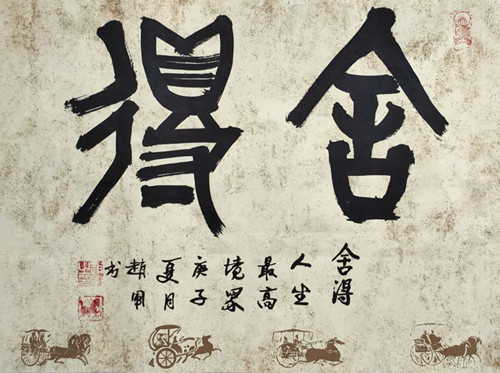 舍得
舍得
人生
最高
境界
庚子
夏月
趙
书